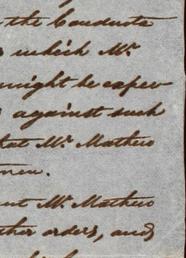 the Conduct
which Mr.
might be
against such
that Mr. Mathew
men.
Mr. Mathew
orders, and